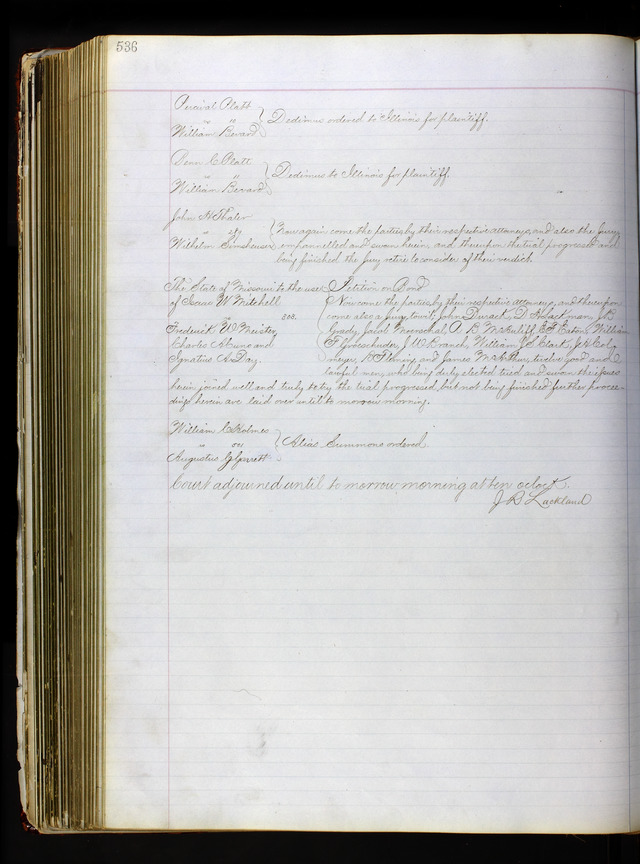 536
Percival Platt
" vs } Dedimus ordered to Illinois for plaintiff.
William Bevard
Platt
" " } Dedimus to Illinois for plaintiff.
William Bevard
John H Thaler
" vs } Now again come the parties by their respective attorneys, and also the Jury
Wilhelm empannelled and sworn herein, and thereupon the trial progressed and
being finished the jury retire to consider of their verdict.
The State of Missouri to the use } Petition on Bond
of Isaac W Mitchell } Now come the parties by their respective attorneys, and thereupon
vs. come also a jury, to wit, John Durack, D H Jackman, B
Frederick W Meister, Grady, Jacob A. B. E F Eaton, William
Charles A Bruno and F J W Branch, William Clark, J H
Ignatius A. Day. meyer, B Fleming and James twelve good and
lawful men, who being duly elected tried and sworn the issues
herein joined well and truly to try the trial progressed, but not being finished further procee-
dings herein are laid over until to morrow morning.
William C Holmes
" vs } Alias Summons ordered.
Augustus J Garrett
Court adjourned until to morrow morning at ten oclock.
J R Lackland